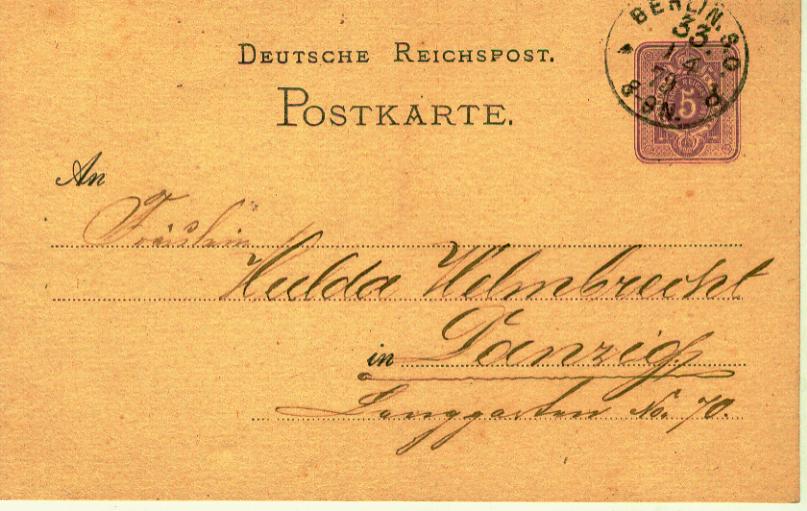 DEUTSCHE REICHSPOST.
POSTKARTE.
BERLIN. S.O
33.
1 4
79
8-9N.
5
An
Fräulein
Hulda Helmbrecht
in Danzig
Langgarten No. 70.